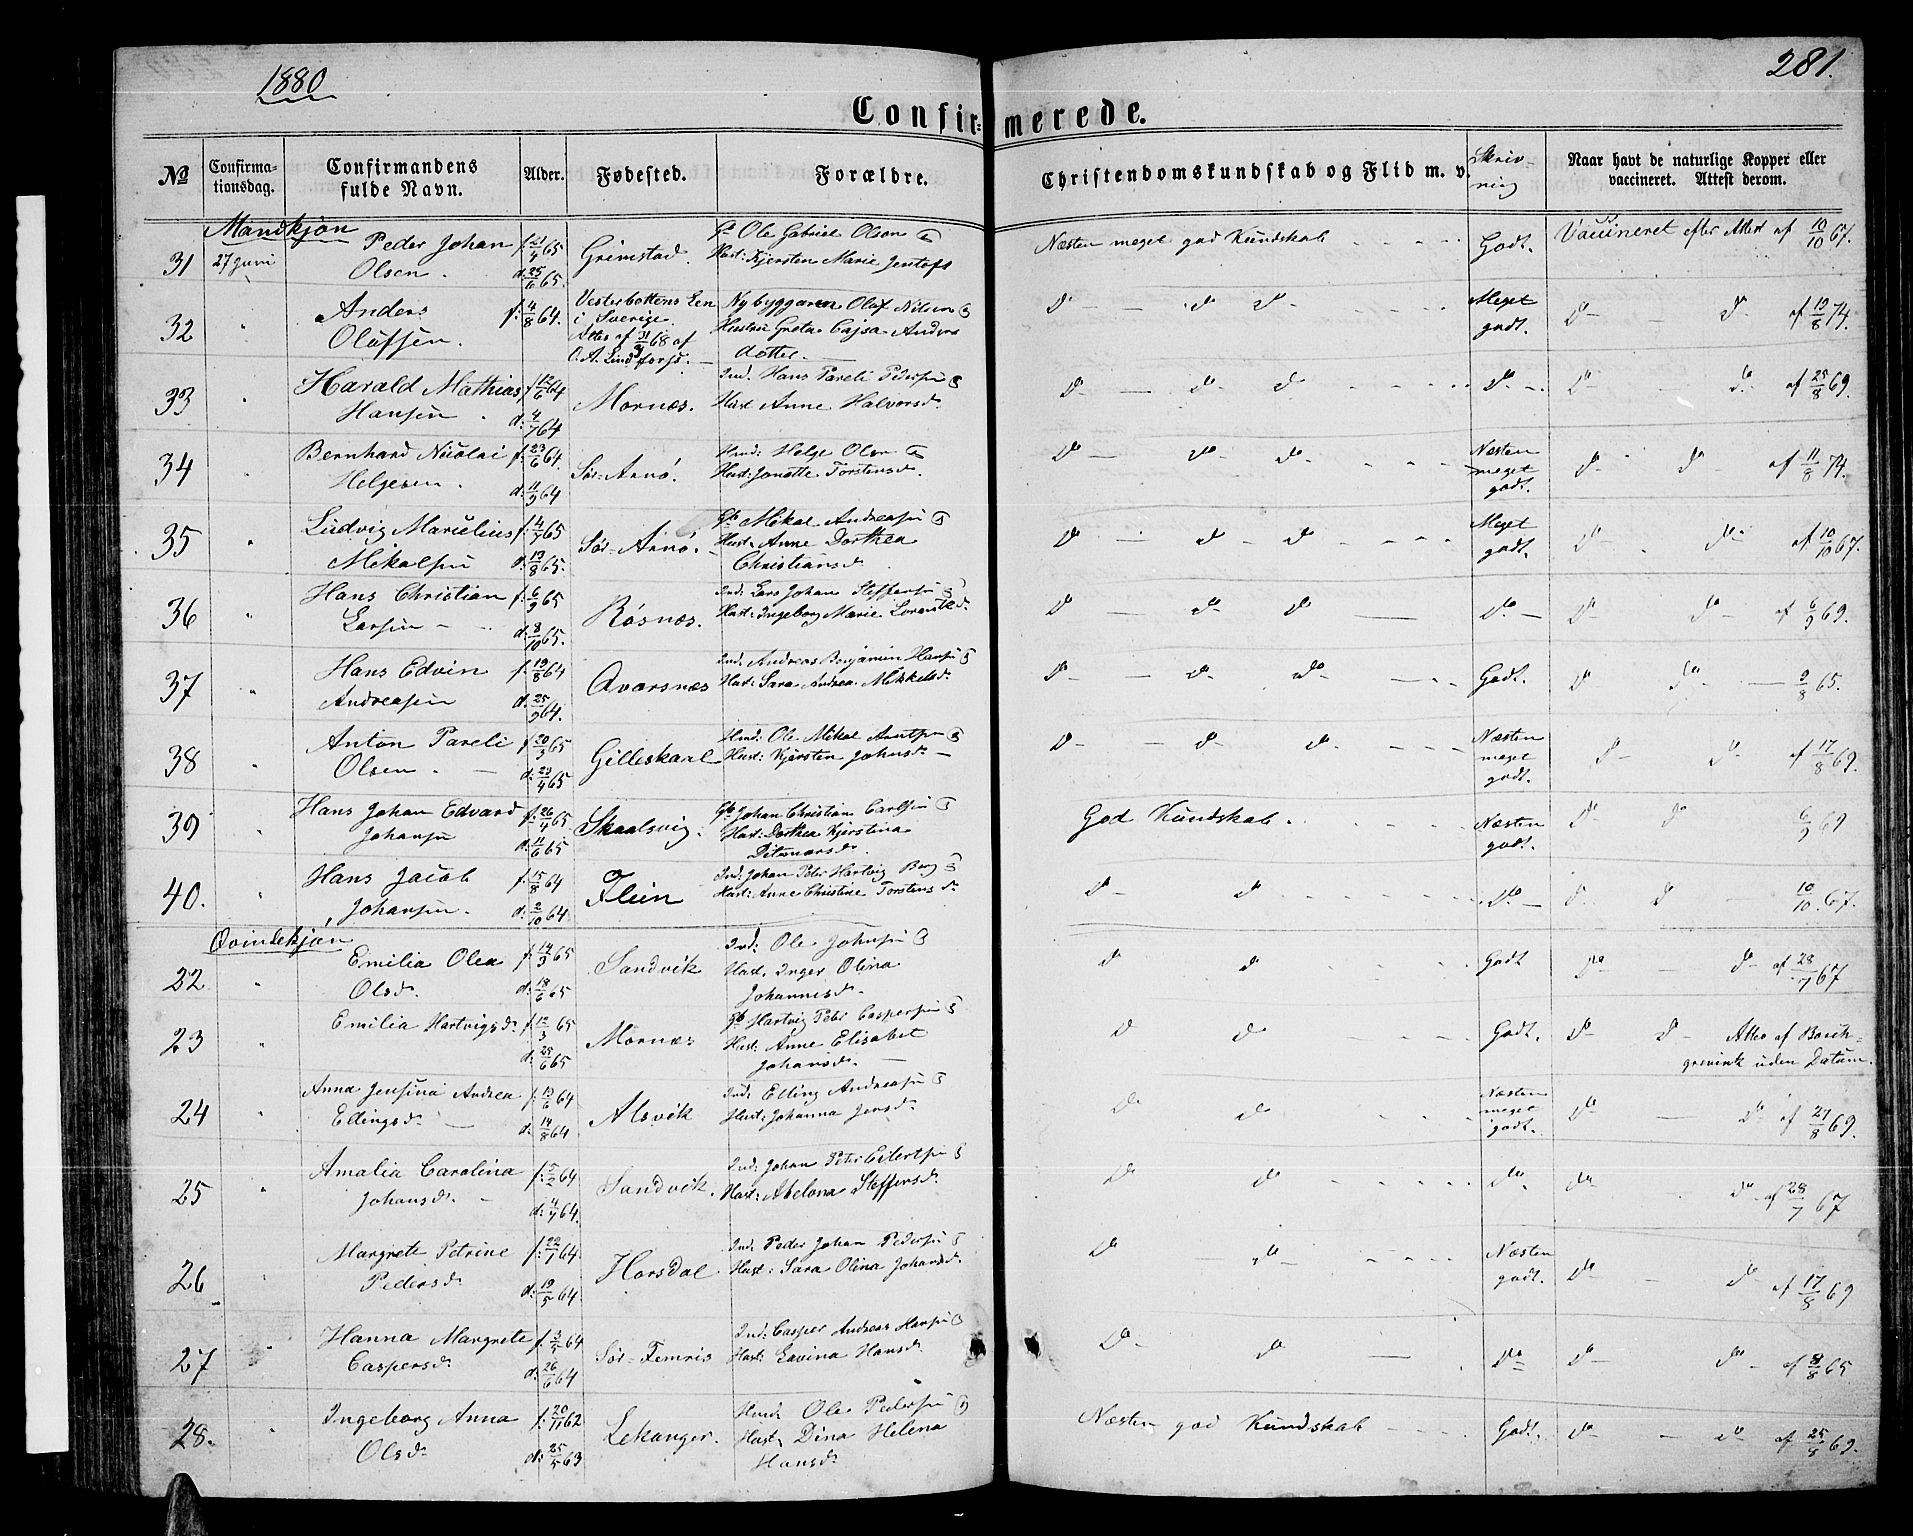 1880
281.
Confirmerede.
№ Confirmationsdag. Confirmandens fulde Navn. Alder. Fødested. Forældre. Christendomskundskab og Flid m. v. Skrivning Naar havt de naturlige Kopper eller vaccineret. Attest derom.
Mandkjøn
31 27 Juni Peder Johan Olsen. f. 21/4 65 d. 25/6 65. Grimstad. Ole Gabriel Olsen Hust: Kjersten Marie Jentofs Næsten meget god Kundskab Godt. Vaccineret efter Attest af 10/10 67.
32 " Anders Olufsen. f. 4/8 64. Vesterbottens Len i Sverige. Attes af 68 af C. A. Lindforss. Nybyggaren Olof Nilsen Hustru Greta Cajsa Anders dotter. Do Do Do Meget godt. Do Do af 19/8 74.
33 " Harald Mathias Hansen. f. 12/6 64 d. 4/7 64 Mornæs. Ind. Hans Pareli Pedersen Hust Anne Halvorsd. Do Do Do Do Do Do af 25/8 69.
34 " Bernhard Nicolai Helgesen. f. 23/6 64. d. 11/9 64 Sør-Arnø. Hmd: Helge Olsen Hust: Jonette Torstensd. Do Do Do Næsten meget godt. Do Do af 11/8 74.
35 " Ludvig Marselius Mekalsen f. 4/7 65 d. 13/8 65. Sør-Arnø. Gb Mekal Andreasen Hust. Anne Dorthea Christiansd. Do Do Do Meget godt. Do Do af 10/10 67.
36 " Hans Christian Larsen f. 6/9 65 d. 8/10 65. Røsnæs. Ind: Lars Johan Steffensen Hust: Ingeborg Marie Lorentsd. Do Do Do Do Do Do af 6/9 69.
37 " Hans Edvin Andreasen f. 19/8 64 d. 25/9 64. Qvarsnæs Ind. Andreas Benjamin Hansen Hust: Sara Andrea Mikkelsd. Do Do Do Godt. Do Do 9/8 65.
38 " Anton Pareli Olsen. f. 20/3 65 d. 23/4 65 Gilleskaal Hmd: Ole Mikal Arntsen Hust: Kjersten Johnsd. Do Do Do Næsten meget godt. Do Do af 17/8 69.
39 " Hans Johan Edvard Johansen f. 26/4 65 d. 11/6 65 Skaalsvig. Gb Johan Christian Carlsen Hust: Dorthea Kjerstina Ditmarsd. God Kundskab. Næsten godt. Do Do 6/9 69
40. " Hans Jacob Johansen. f. 15/8 64 d. 2/10 64 Flein Ind. Johan Peter Hartvig Berg Hust: Anne Christine Torstensd. Do Do Do Do Do 10/10 67.
Qvindekjøn
22 " Emilia Olea Olsd. f. 14/3 65 d. 18/6 65 Sandvik Ind: Ole Johnsen Hust. Inger Olina Johannesd. Do Do Godt Do Do af 28/7 67
23 " Emilia Hartvigsd. f. 12/3 65 d. 25/6 65 Mornæs Gb Hartvig Peter Caspersen Hust: Anne Elisabet Johansd. Do Do Godt. Do Do Attes af Borchgrevink uden Datum.
24 " Anna Jensina Andrea Ellingsd. f. 13/6 64 d. 14/8 64 Alsvik Ind: Elling Andreasen Hust: Johanna Jensd. Do Do Næsten meget godt. Do Do af 27/8 69.
25 " Amalia Carolina Johansd. f. 5/2 64 d. 4/4 64. Sandvik. Ind: Johan Peter Eilertsen Hust: Abelona Steffensd. Do Do Do Do Do af 28/7 67
26 " Margrete Petrine Pedersd. f. 22/1 64 d. 19/5 64. Horsdal Ind: Peder Johan Pedersen Hust: Sara Olina Johansd. Do Do Næsten godt. Do Do af 17/8 69
27 " Hanna Margrete Caspersd. f. 3/5 64 d. 26/6 64 Sør-Femris Ind: Casper Andreas Hansen Hust: Lavina Hansd. Do Do Do Do Do af 9/8 65
28. " Ingeborg Anna Olsd. f. 20/11 62 d. 25/5 63 Lekanger. Hmd: Ole Pedersen Hust. Dina Helena Hansd. Næsten god Kundskab Godt. Do Do af 25/8 69.